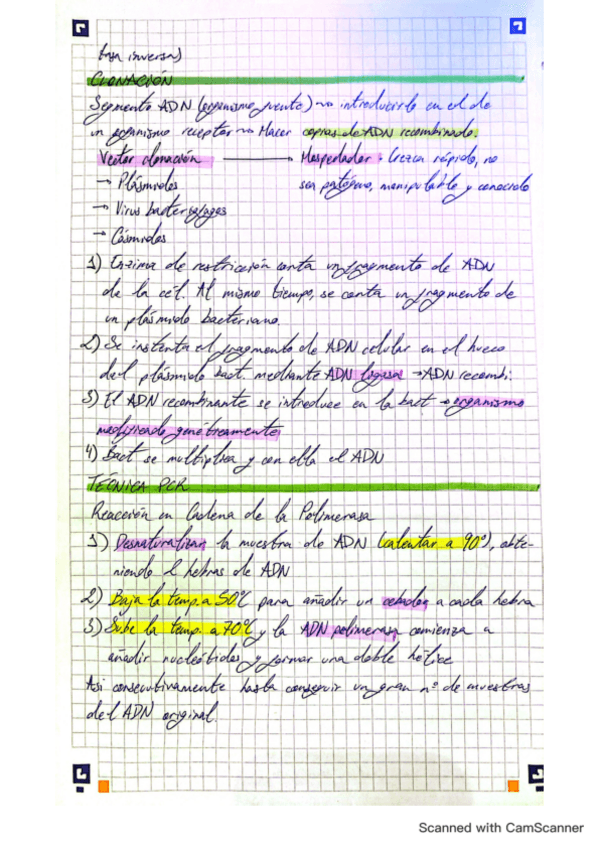 inversa)
CLONACIÓN
Segmento ADN (organismo fuente) → introducirlo en el de
un organismo receptor → Hacer copias de ADN recombinado.
Vector clonación ——— Hospedador: Crezca rápido, no
→ Plásmidos sea patógeno, manipulable y conocido
→ Virus bacteriófagos
→ Cósmidos
1) Enzima de restricción corta un fragmento de ADN
de la cél. Al mismo tiempo, se corta un fragmento de
un plásmido bacteriano.
2) Se instenta el fragmento de ADN celular en el hueco
del plásmido bact. mediante ADN ligasa → ADN recombi.
3) El ADN recombinante se introduce en la bact → organismo
modificado genéticamente
4) Bact se multiplica y con ella el ADN
TÉCNICA PCR
Reacción en Cadena de la Polimerasa
1) Desnaturalizar la muestra de ADN (calentar a 90º), obte-
niendo 2 hebras de ADN
2) Baja la temp. a 50ºC para añadir un cebador a cada hebra
3) Sube la temp. a 70ºC y la ADN polimerasa comienza a
añadir nucleótidos y formar una doble hélice
Asi consecutivamente hasta conseguir un gran nº de muestras
del ADN original.
Scanned with CamScanner